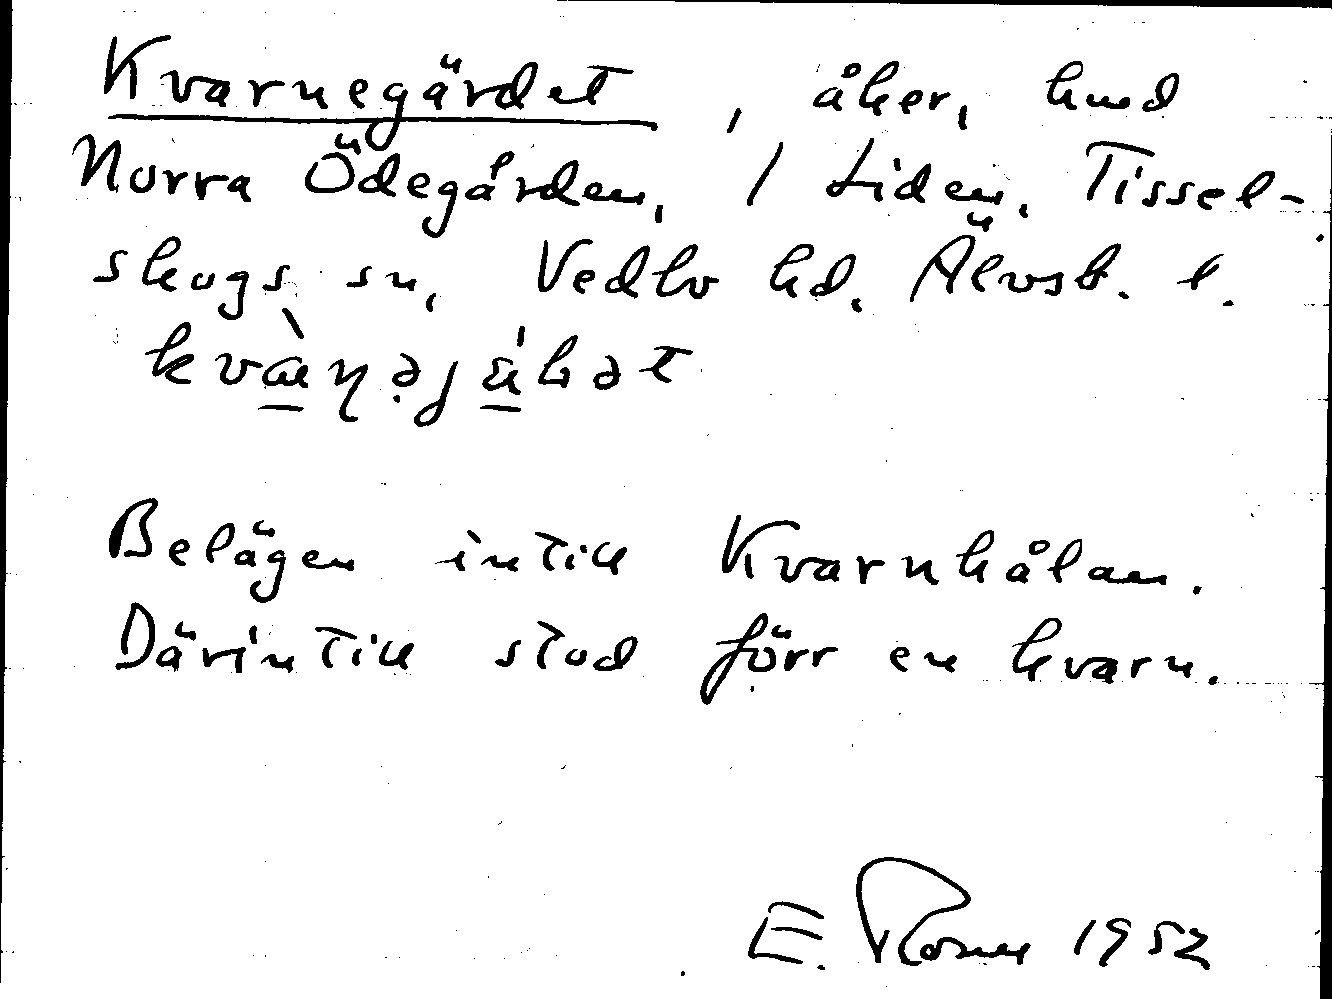 Kvarnegärdet, åker, hmd
Norra Ödegården, 1 Liden. Tissel-
skogs sn, Vedbo hd. Älvsb. l.
Belägen intill Kvarnhålan.
Därintill stod förr en kvarn.
E. 1952